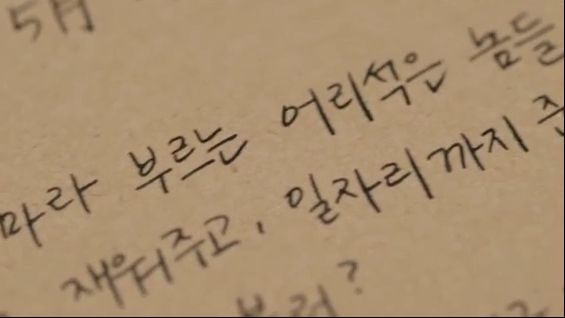 5月
마라 부르는 어리석은 놈들
재워주고, 일자리까지 준